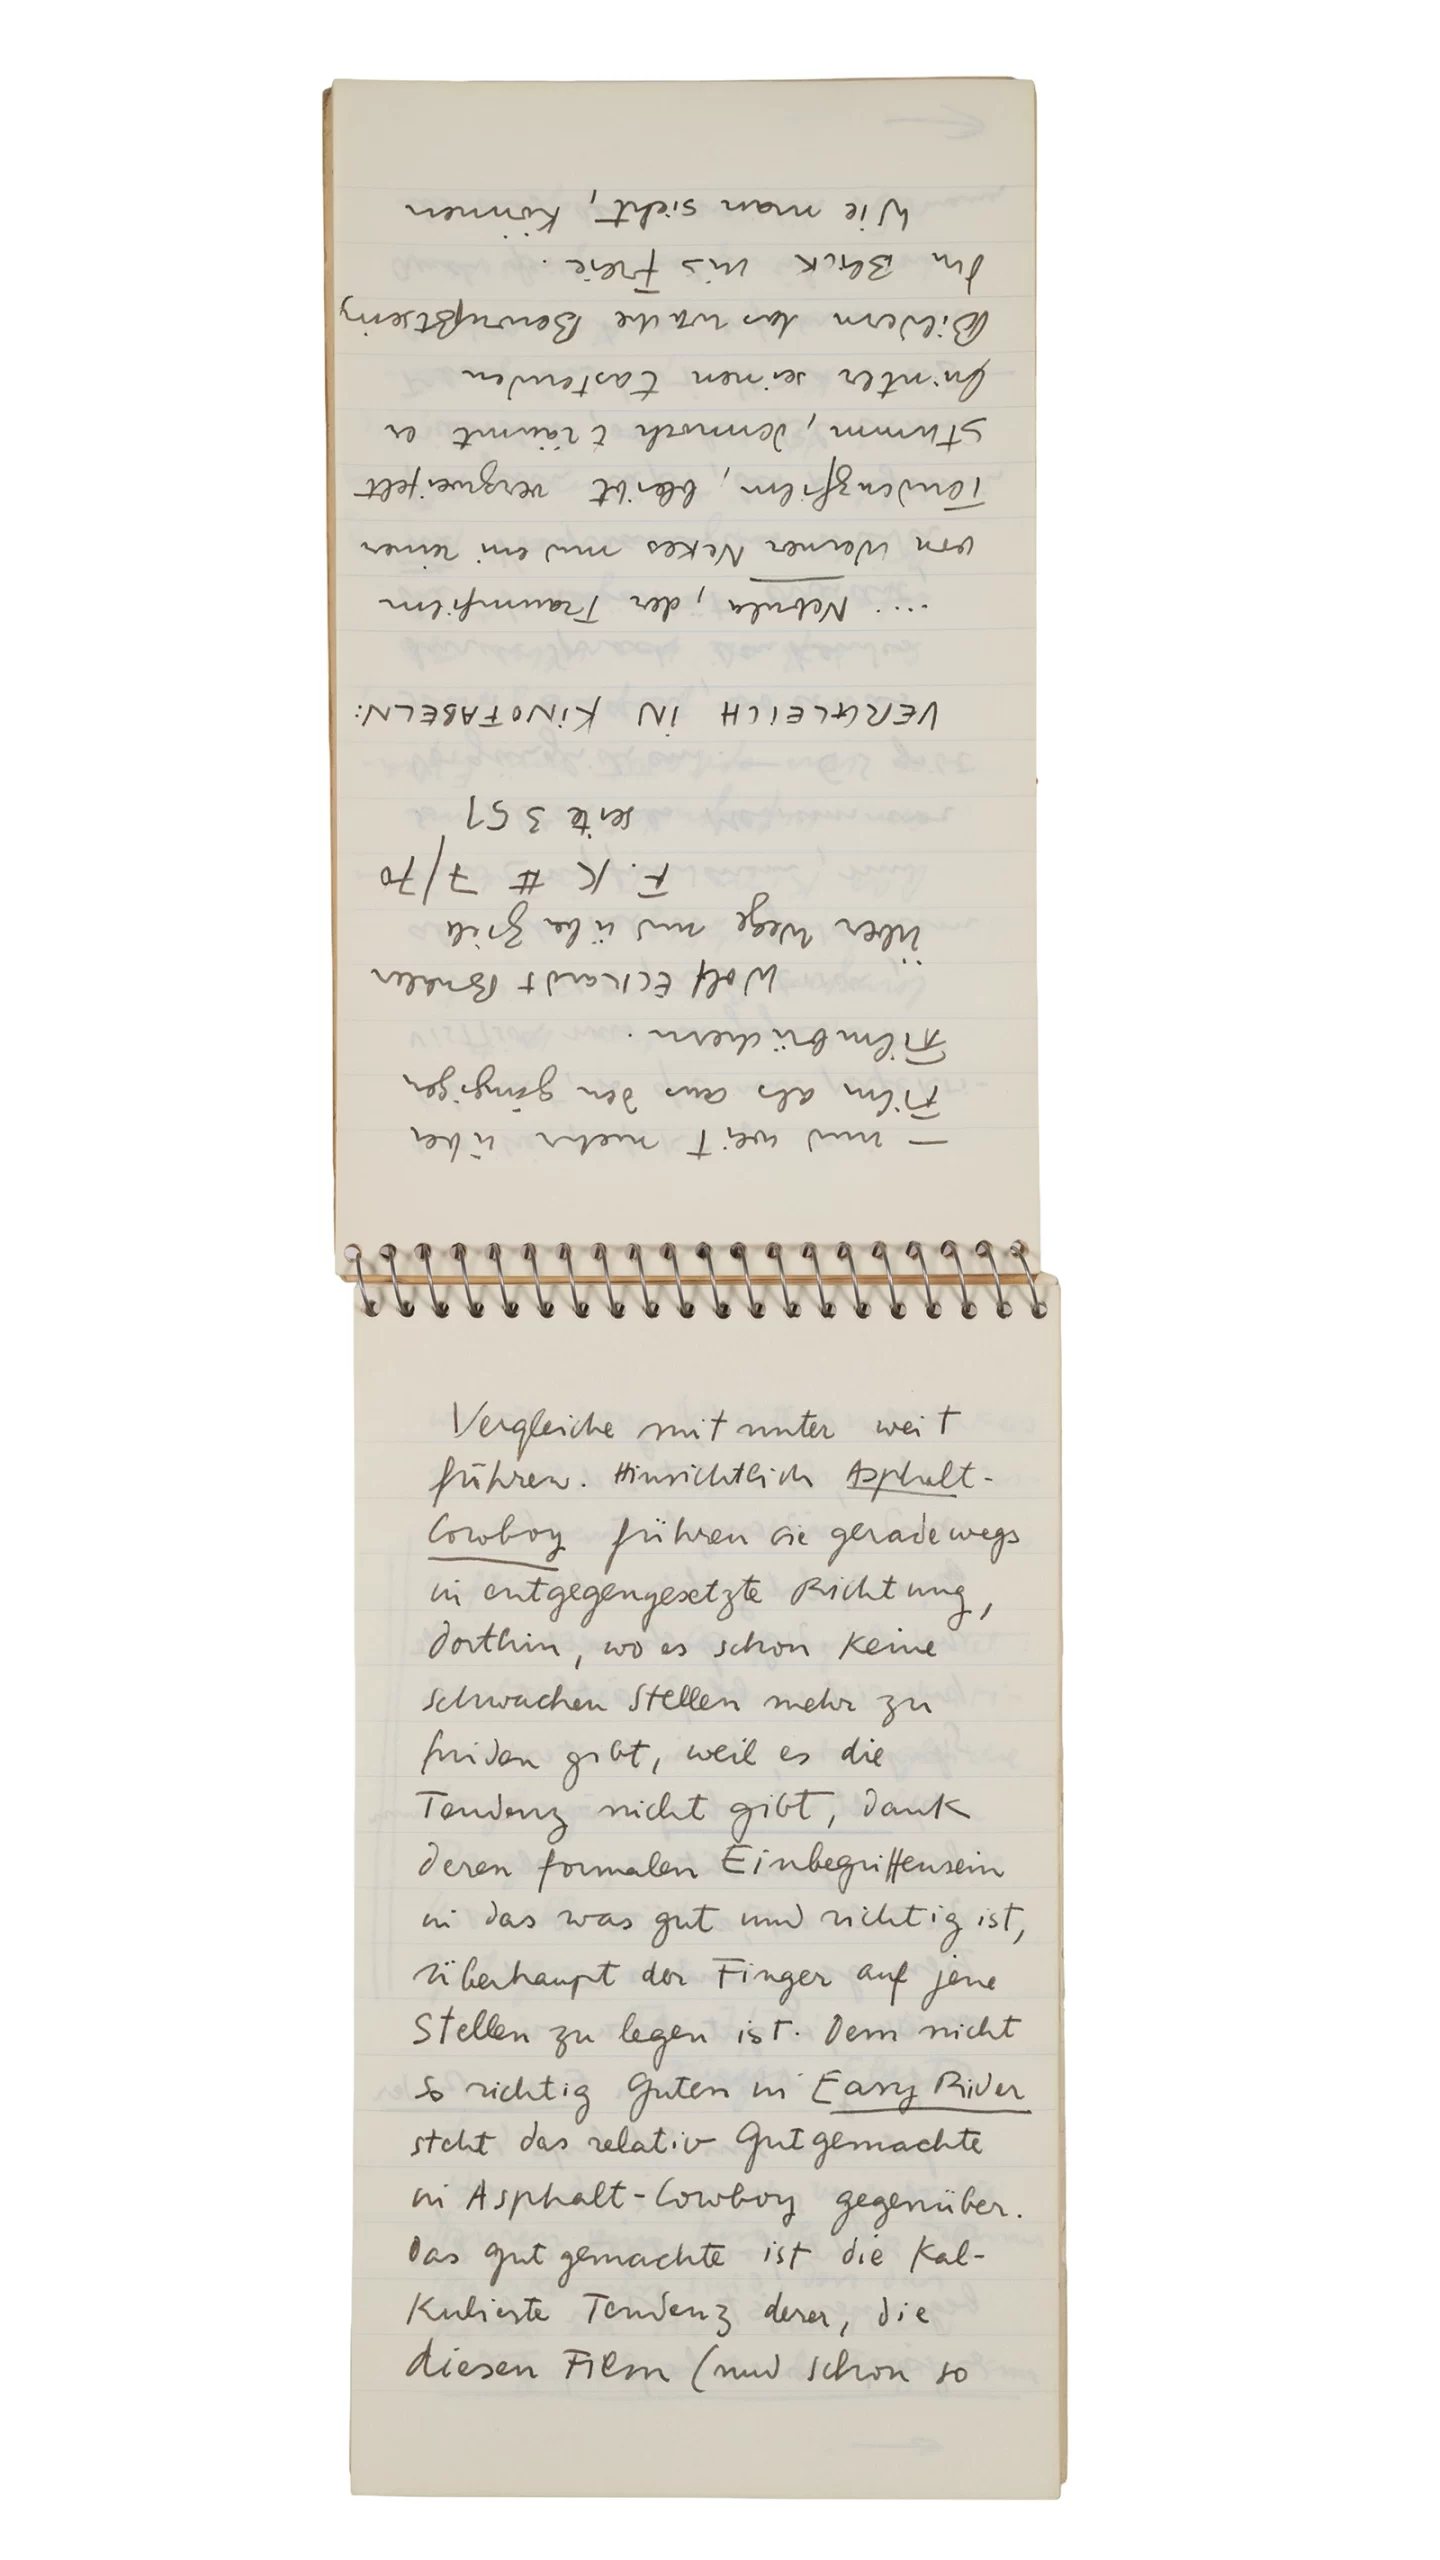 — und weit mehr über
Film als aus den gängigen
Filmbüchern.
Wolf Eckardt Bühler
über Wege und über Ziele
F. K # 7/70
seite 351
VERGLEICH IN KINOFABELN:
... Nebula, der Traumfilm
von Werner Nekes und ein reiner
Tendenzfilm, bleibt verzweifelt
stumm, dennoch träumt er
hinter seinen tastenden
Bildern das wache Bewußtsein,
den Blick ins Freie.
Wie man sieht, können
Vergleiche mitunter weit
führen. Hinsichtlich Asphalt-
Cowboy führen sie geradewegs
in entgegengesetzte Richtung,
dorthin, wo es schon keine
schwachen Stellen mehr zu
finden gibt, weil es die
Tendenz nicht gibt, dank
deren formalen Einbegriffensein
in das was gut und richtig ist,
überhaupt der Finger auf jene
Stellen zu legen ist. Dem nicht
so richtig Guten in Easy Rider
steht das relativ Gutgemachte
in Asphalt-Cowboy gegenüber.
Das gut gemachte ist die Kal-
kulierte Tendenz derer, die
diesen Film (und schon so